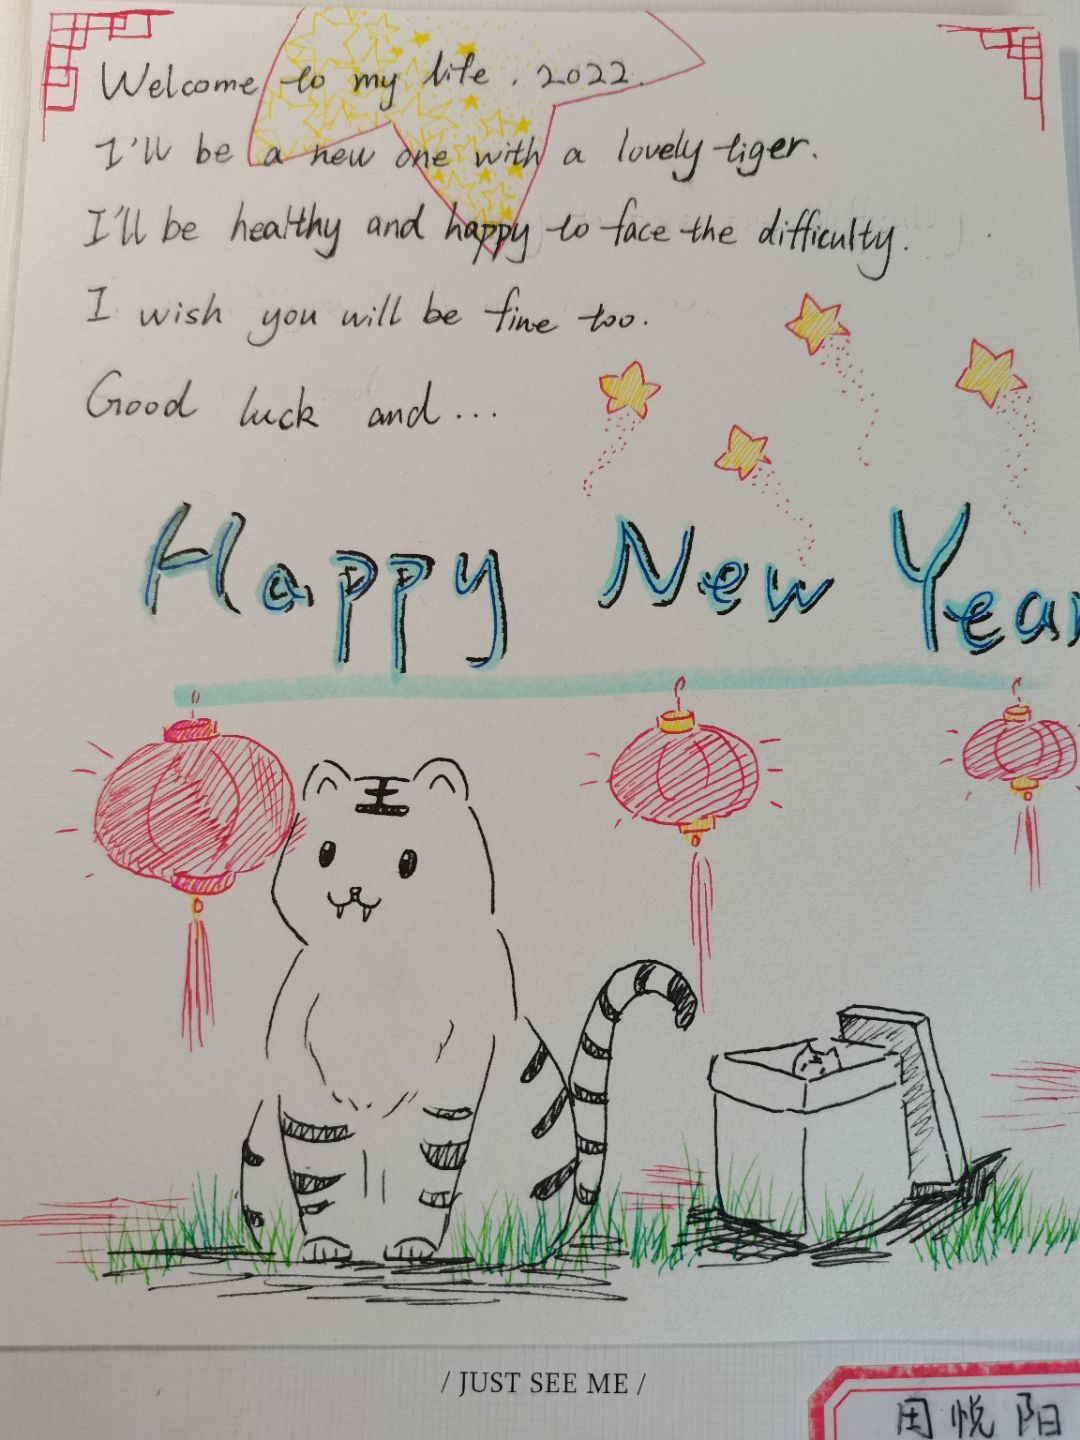 Welcome to my life . 2022.
I'll be a new one with a lovely tiger.
I'll be healthy and happy to face the difficulty.
I wish you will be fine too.
Good luck and ...
Happy New Year
/ JUST SEE ME /
田悦阳